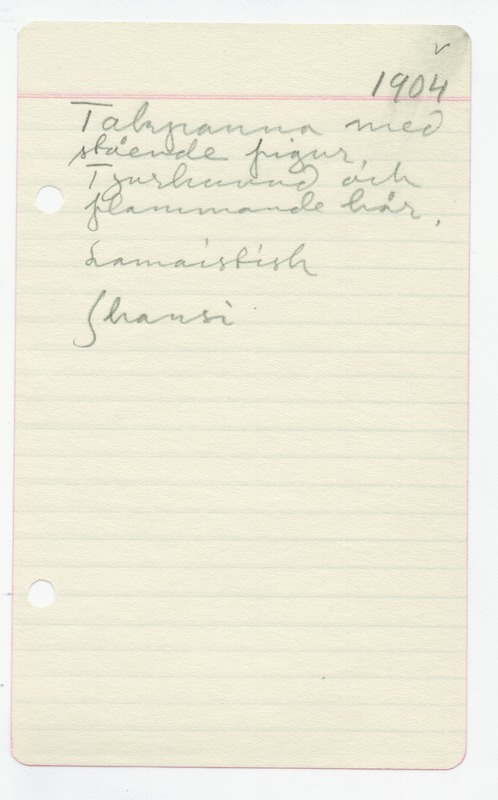 v
1904
Takpanna med
stående figur,
Tjurhuvud och
flammande hår.
Lamaistisk
Shansi